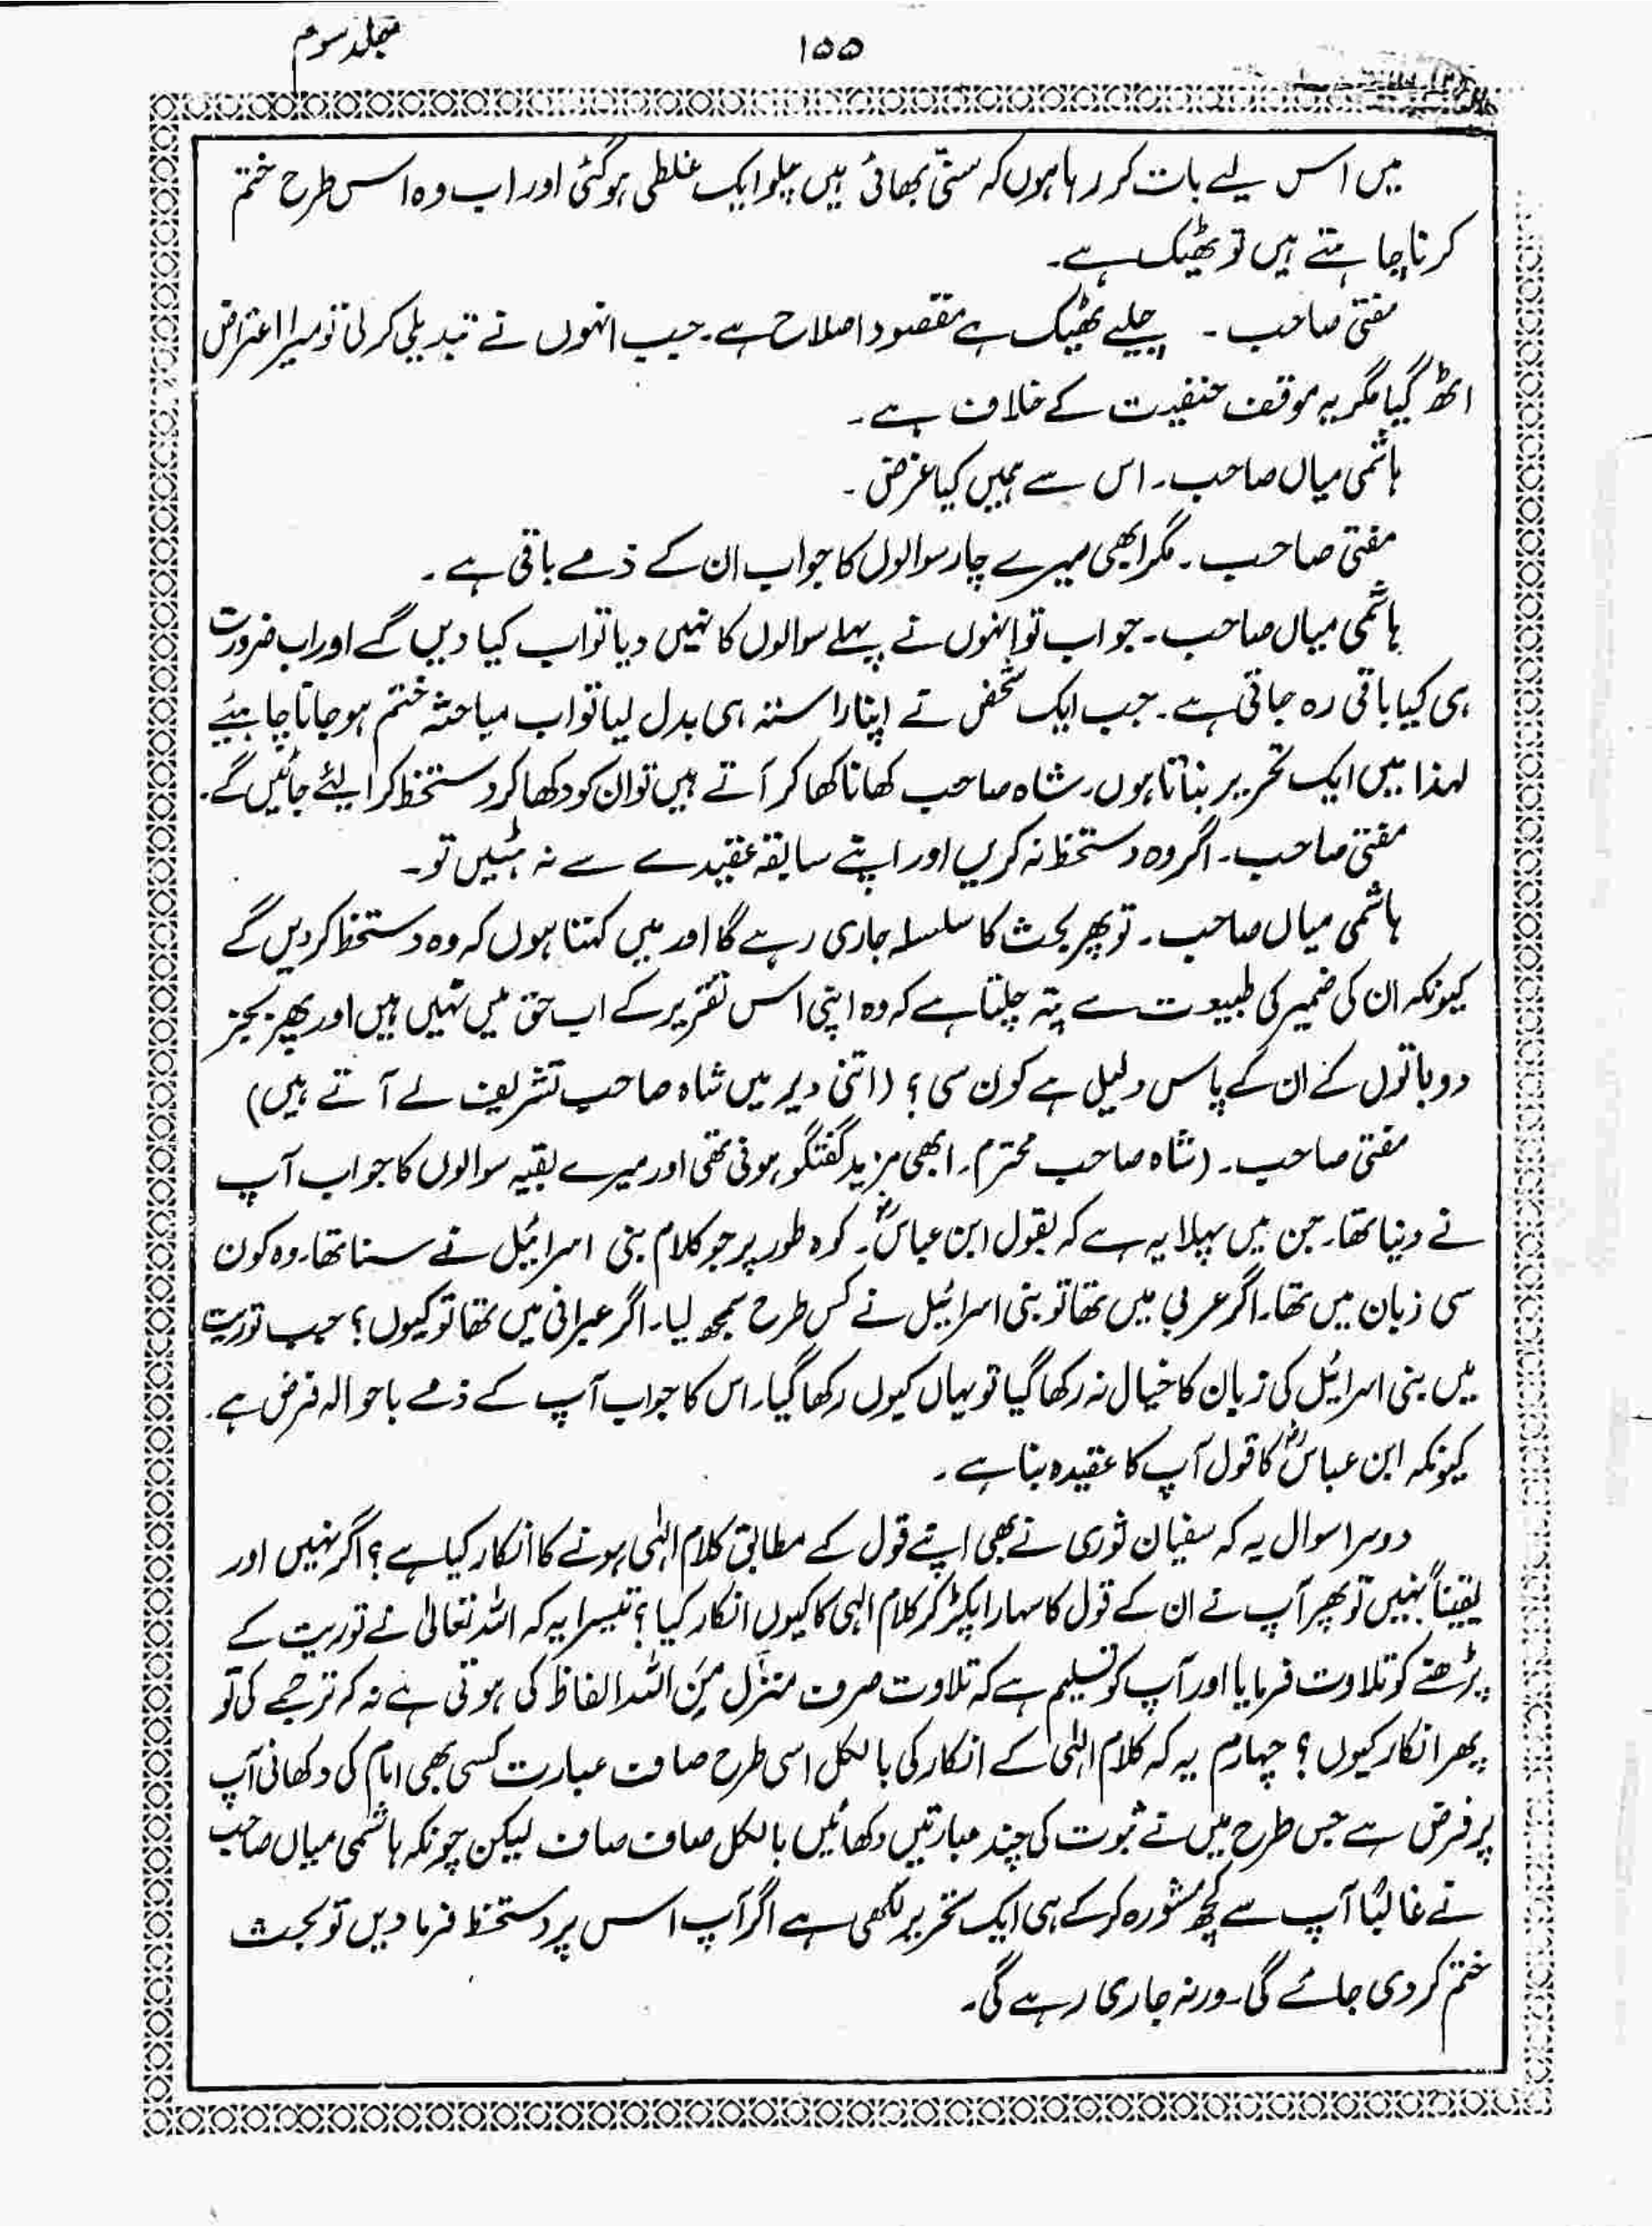 جلد سوم
۱۵۵
میں اس لیے بات کر رہا ہوں کہ سنّی بھائی ہیں چلو ایک غلطی ہو گئی اور اب وہ اس طرح ختم
کرنا چاہتے ہیں تو ٹھیک ہے۔
مفتی صاحب ۔ چلیے ٹھیک ہے مقصود اصلاح ہے۔ جب انہوں نے تبدیلی کر لی تو میرا اعتراض
اٹھ گیا مگر یہ موقف حنفیت کے خلاف ہے ۔
ہاشمی میاں صاحب ۔ اس سے ہمیں کیا غرض ۔
مفتی صاحب ۔ مگر ابھی میرے چار سوالوں کا جواب ان کے ذمے باقی ہے ۔
ہاشمی میاں صاحب ۔ جواب تو انہوں نے پہلے سوالوں کا نہیں دیا تو اب کیا دیں گے اور اب ضرورت
ہی کیا باقی رہ جاتی ہے ۔ جب ایک شخص نے اپنا راستہ ہی بدل لیا تو اب مباحثہ ختم ہو جانا چاہیئے
لہذا میں ایک تحریر بناتا ہوں۔ شاہ صاحب کھانا کھا کر آتے ہیں تو ان کو دکھا کر دستخط کرا لیئے جائیں گے۔
مفتی صاحب ۔ اگر وہ دستخط نہ کریں اور اپنے سابقہ عقیدے سے نہ ہٹیں تو ۔
ہاشمی میاں صاحب ۔ تو پھر بحث کا سلسلہ جاری رہے گا اور میں کہتا ہوں کہ وہ دستخط کر دیں گے
کیونکہ ان کی ضمیر کی طبیعت سے پتہ چلتا ہے کہ وہ اپنی اس تقریر کے اب حق میں نہیں ہیں اور پھر بجز
دو باتوں کے ان کے پاس دلیل ہے کون سی؟ (اتنی دیر میں شاہ صاحب تشریف لے آتے ہیں)
مفتی صاحب ۔ (شاہ صاحب محترم۔ ابھی مزید گفتگو ہونی تھی اور میرے بقیہ سوالوں کا جواب آپ
نے دینا تھا۔ جن میں پہلا یہ ہے کہ بقول ابن عباسؓ ۔ کوہ طور پر جو کلام بنی اسرائیل نے سنا تھا۔ وہ کون
سی زبان میں تھا۔ اگر عربی میں تھا تو بنی اسرائیل نے کس طرح سمجھ لیا۔ اگر عبرانی میں تھا تو کیوں؟ جب توریت
میں بنی اسرائیل کی زبان کا خیال نہ رکھا گیا تو یہاں کیوں رکھا گیا۔ اس کا جواب آپ کے ذمے باحوالہ فرض ہے۔
کیونکہ ابن عباسؓ کا قول آپ کا عقیدہ بنا ہے ۔
دوسرا سوال یہ کہ سفیان ثوری نے بھی اپنے قول کے مطابق کلام الٰہی ہونے کا انکار کیا ہے؟ اگر نہیں اور
یقیناً نہیں تو پھر آپ نے ان کے قول کا سہارا پکڑ کر کلام الہی کا کیوں انکار کیا؟ تیسرا یہ کہ اللہ تعالیٰ نے توریت کے
پڑھنے کو تلاوت فرمایا اور آپ کو تسلیم ہے کہ تلاوت صرف منزّل مِنَ اللہ الفاظ کی ہوتی ہے نہ کہ ترجمے کی تو
پھر انکار کیوں؟ چہارم یہ کہ کلام الٰہی کے انکار کی بالکل اسی طرح صاف عبارت کسی بھی امام کی دکھانی آپ
پر فرض ہے جس طرح میں نے ثبوت کی چند عبارتیں دکھائیں بالکل صاف صاف لیکن چونکہ ہاشمی میاں صاحب
نے غالبًا آپ سے کچھ مشورہ کر کے ہی ایک تحریر لکھی ہے اگر آپ اس پر دستخط فرما دیں تو بحث
ختم کر دی جائے گی۔ ورنہ جاری رہے گی۔